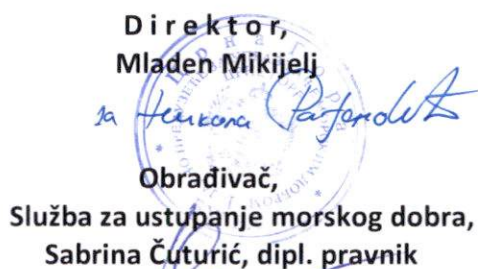 D i r e k t o r,
Mladen Mikijelj
за
Obrađivač,
Služba za ustupanje morskog dobra,
Sabrina Čuturić, dipl. pravnik